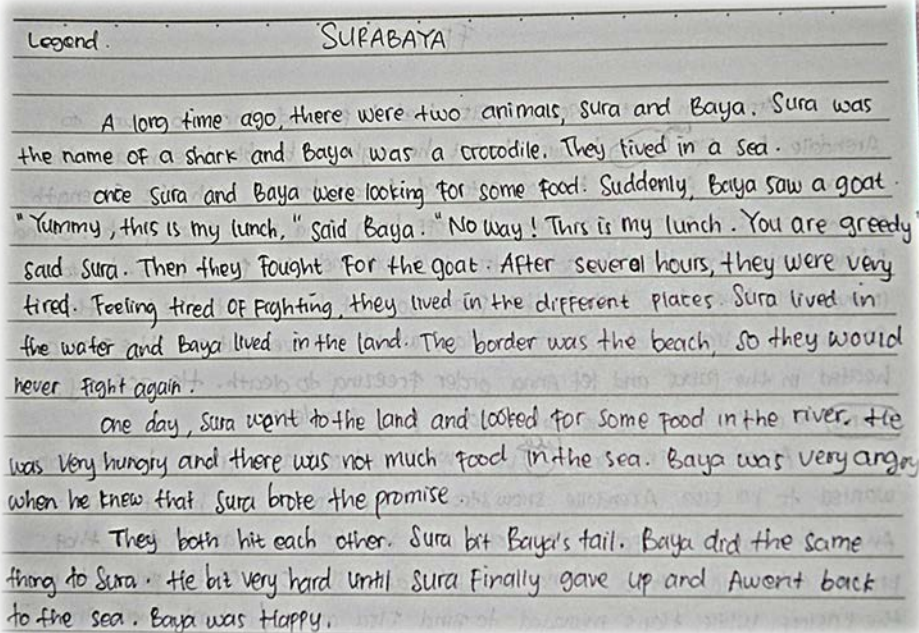 Legend. SURABAYA
A long time ago, there were two animals, Sura and Baya. Sura was
the name of a shark and Baya was a crocodile. They lived in a sea.
once Sura and Baya were looking for some food. Suddenly, Baya saw a goat.
"Yummy, this is my lunch," said Baya. "No way! This is my lunch. You are greedy"
said Sura. Then they fought for the goat. After several hours, they were very
tired. Feeling tired of fighting, they lived in the different places Sura lived in
the water and Baya lived in the land. The border was the beach, so they would
never fight again.
One day, Sura went to the land and looked for some food in the river. He
was very hungry and there was not much food in the sea. Baya was very angry
when he knew that Sura broke the promise.
They both hit each other. Sura bit Baya's tail. Baya did the same
thing to Sura. He bit very hard until Sura Finally gave up and Awent back
to the sea. Baya was Happy.